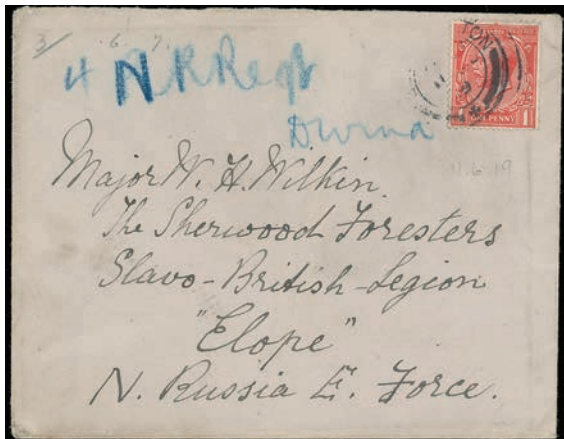 3/ 6 7
4 N R Regt
Dwina
11.6.19
ONE PENNY
Major W. H. Wilkin.
The Sherwood Foresters
Slavo-British-Legion
"Elope"
N. Russia E. Force.